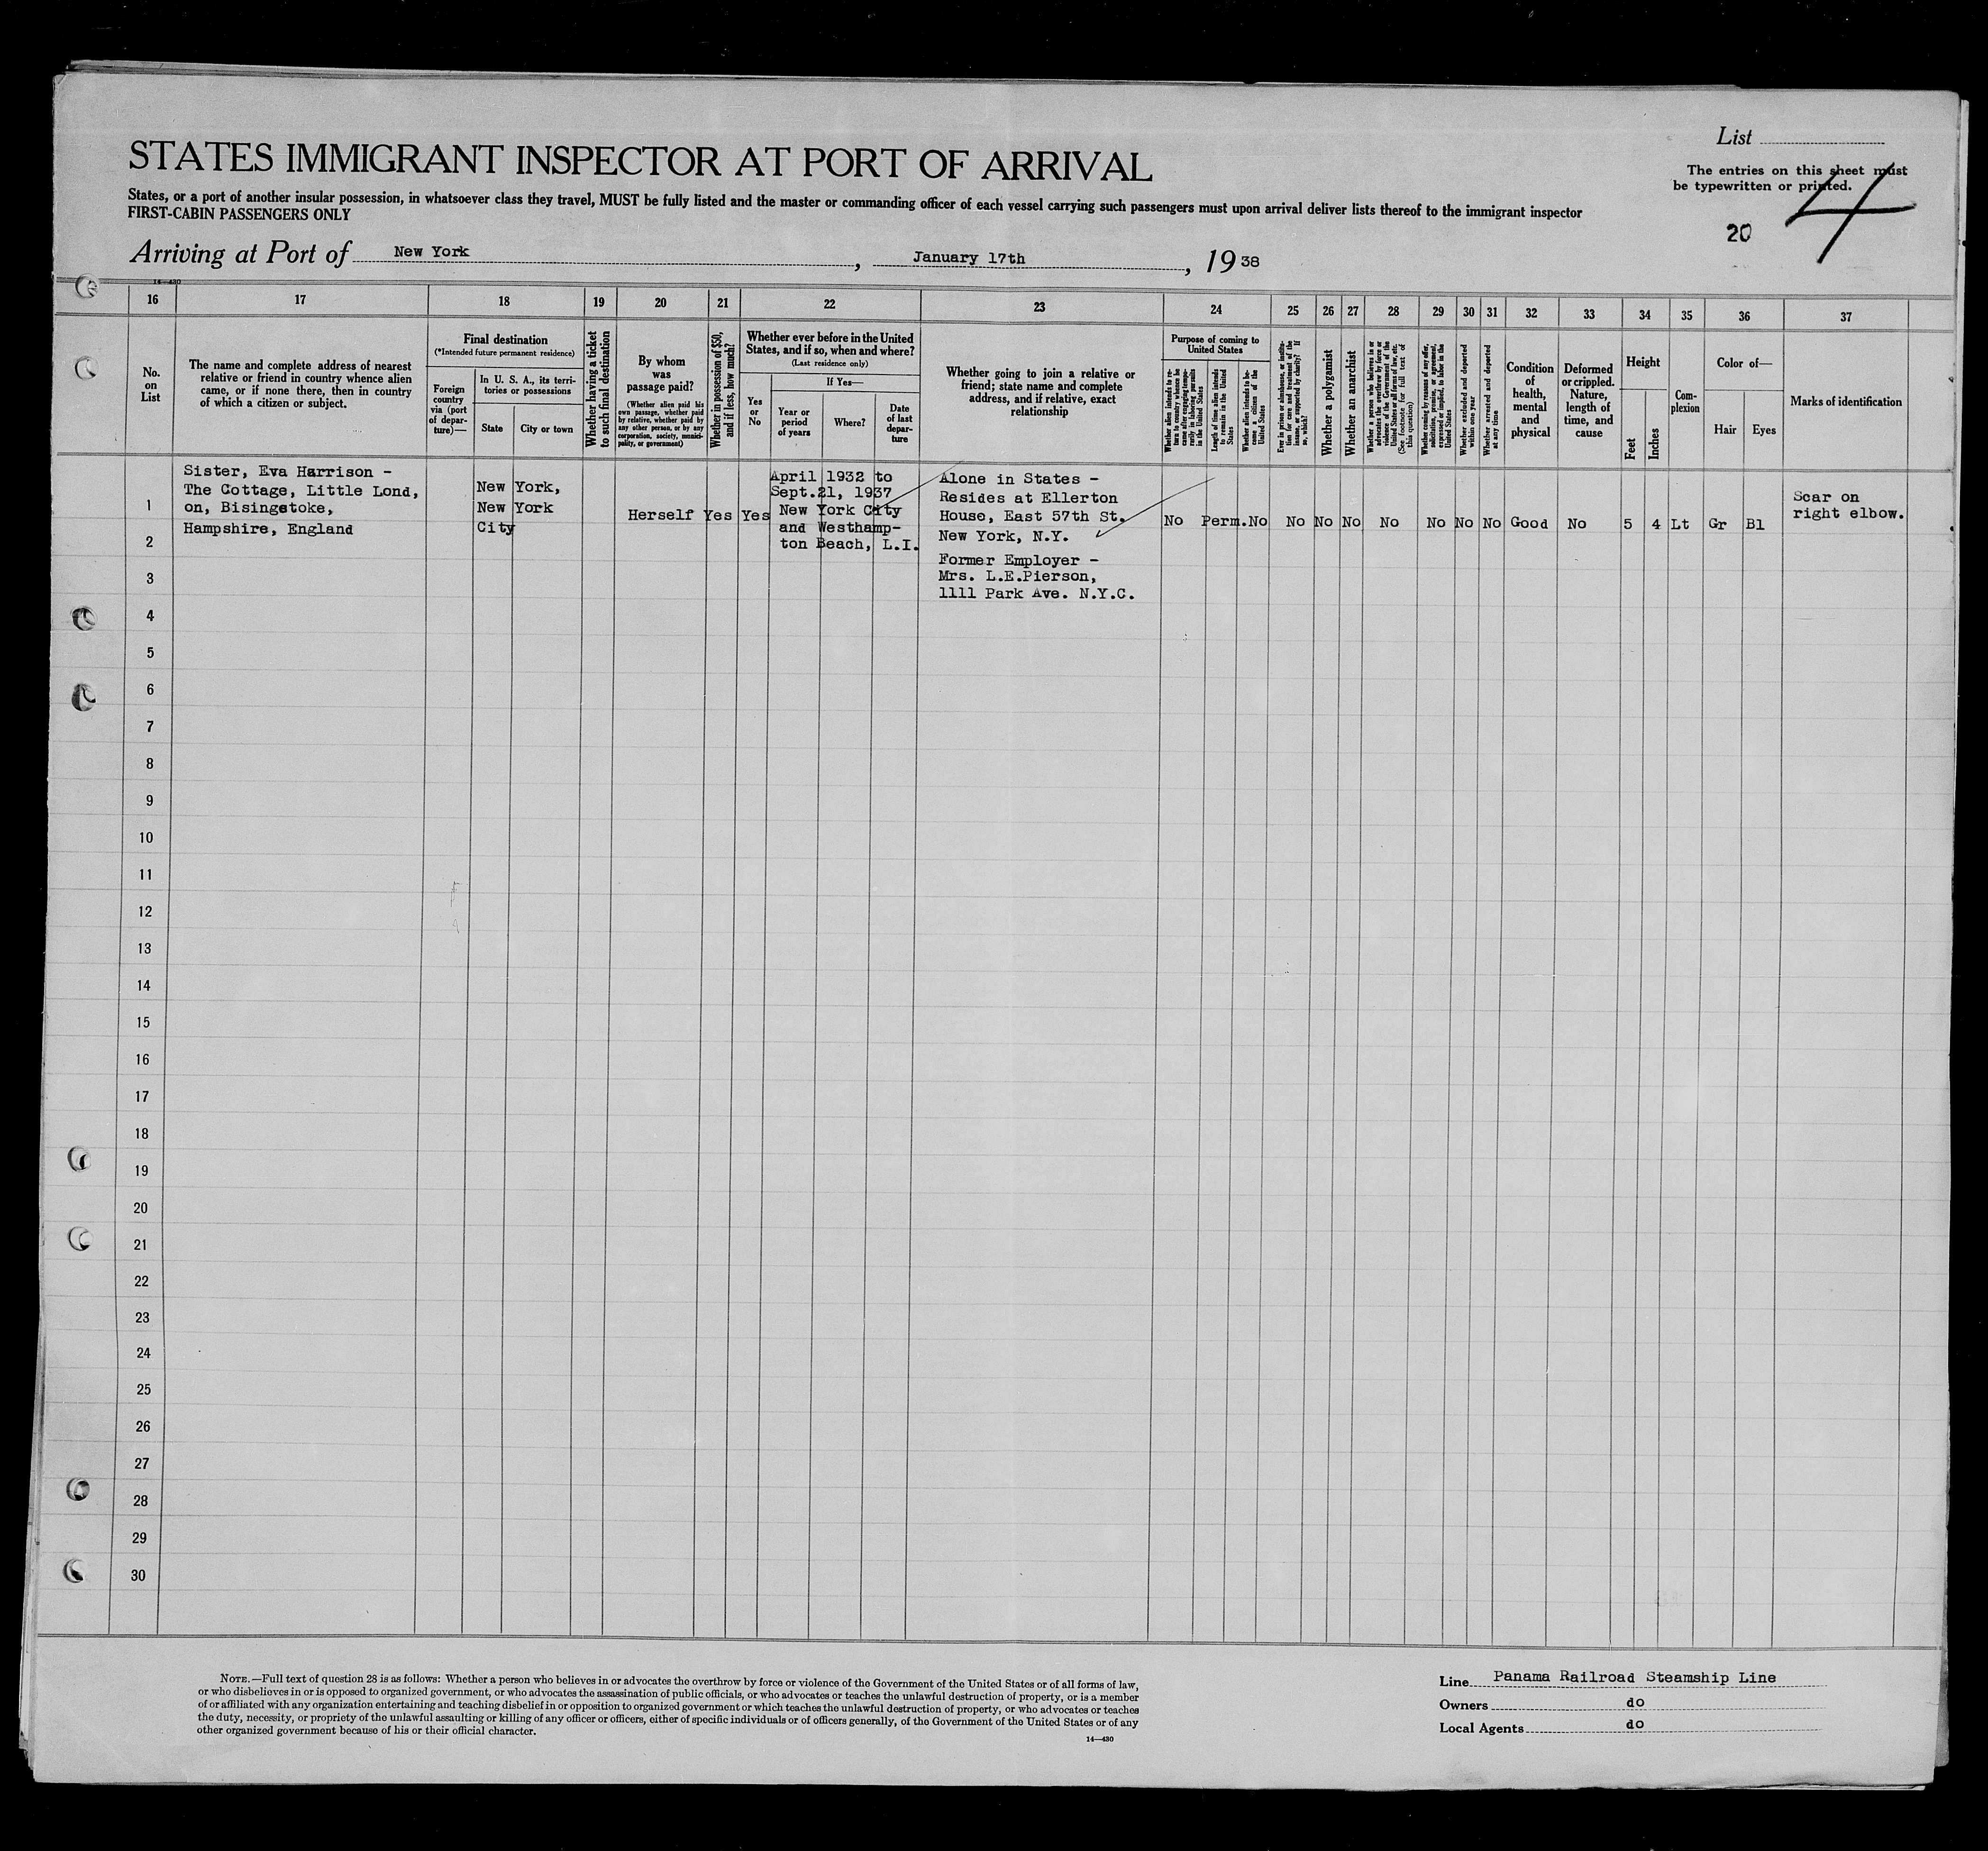 List
The entries on this sheet must
be typewritten or printed.
4
20
STATES IMMIGRANT INSPECTOR AT PORT OF ARRIVAL
States, or a port of another insular possession, in whatsoever class they travel, MUST be fully listed and the master or commanding officer of each vessel carrying such passengers must upon arrival deliver lists thereof to the immigrant inspector
FIRST-CABIN PASSENGERS ONLY
Arriving at Port of New York, January 17th, 1938
14—430
16 17 18 19 20 21 22 23 24 25 26 27 28 29 30 31 32 33 34 35 36 37
No.
on
List
The name and complete address of nearest
relative or friend in country whence alien
came, or if none there, then in country
of which a citizen or subject.
Final destination
(*Intended future permanent residence)
Foreign
country
via (port
of depar-
ture)—
In U. S. A., its terri-
tories or possessions
State
City or town
Whether having a ticket
to such final destination
By whom
was
passage paid?
(Whether alien paid his
own passage, whether paid
by relative, whether paid by
any other person, or by any
corporation, society, munici-
pality, or government)
Whether in possession of $50,
and if less, how much?
Whether ever before in the United
States, and if so, when and where?
(Last residence only)
Yes
or
No
If Yes—
Year or
period
of years
Where?
Date
of last
depar-
ture
Whether going to join a relative or
friend; state name and complete
address, and if relative, exact
relationship
Purpose of coming to
United States
Whether alien intends to re-
turn to country whence he
came after engaging tempo-
rarily in laboring pursuits
in the United States
Length of time alien intends
to remain in the United
States
Whether alien intends to be-
come a citizen of the
United States
Ever in prison or almshouse, or institu-
tion for care and treatment of the
insane, or supported by charity? If
so, which?
Whether a polygamist
Whether an anarchist
Whether a person who believes in or
advocates the overthrow by force or
violence of the Government of the
United States or all forms of law, etc.
(See footnote for full text of
this question)
Whether coming by reasons of any offer,
solicitation, promise, or agreement,
expressed or implied, to labor in the
United States
Whether excluded and deported
within one year
Whether arrested and deported
at any time
Condition
of
health,
mental
and
physical
Deformed
or crippled.
Nature,
length of
time, and
cause
Height
Feet
Inches
Com-
plexion
Color of—
Hair
Eyes
Marks of identification
1
Sister, Eva Harrison -
The Cottage, Little Lond,
on, Bisingstoke,
Hampshire, England
New York,
New York
City
Herself
Yes
Yes
April 1932 to
Sept.21, 1937
New York City
and Westhamp-
ton Beach, L.I.
Alone in States -
Resides at Ellerton
House, East 57th St.
New York, N.Y.
Former Employer -
Mrs. L.E.Pierson,
1111 Park Ave. N.Y.C.
No Perm. No No No No No No No No Good No 5 4 Lt Gr Bl
Scar on
right elbow.
2
3
4
5
6
7
8
9
10
11
12
13
14
15
16
17
18
19
20
21
22
23
24
25
26
27
28
29
30
NOTE.—Full text of question 28 is as follows: Whether a person who believes in or advocates the overthrow by force or violence of the Government of the United States or of all forms of law,
or who disbelieves in or is opposed to organized government, or who advocates the assassination of public officials, or who advocates or teaches the unlawful destruction of property, or is a member
of or affiliated with any organization entertaining and teaching disbelief in or opposition to organized government or which teaches the unlawful destruction of property, or who advocates or teaches
the duty, necessity, or propriety of the unlawful assaulting or killing of any officer or officers, either of specific individuals or of officers generally, of the Government of the United States or of any
other organized government because of his or their official character.
14—430
Line Panama Railroad Steamship Line
Owners do
Local Agents do